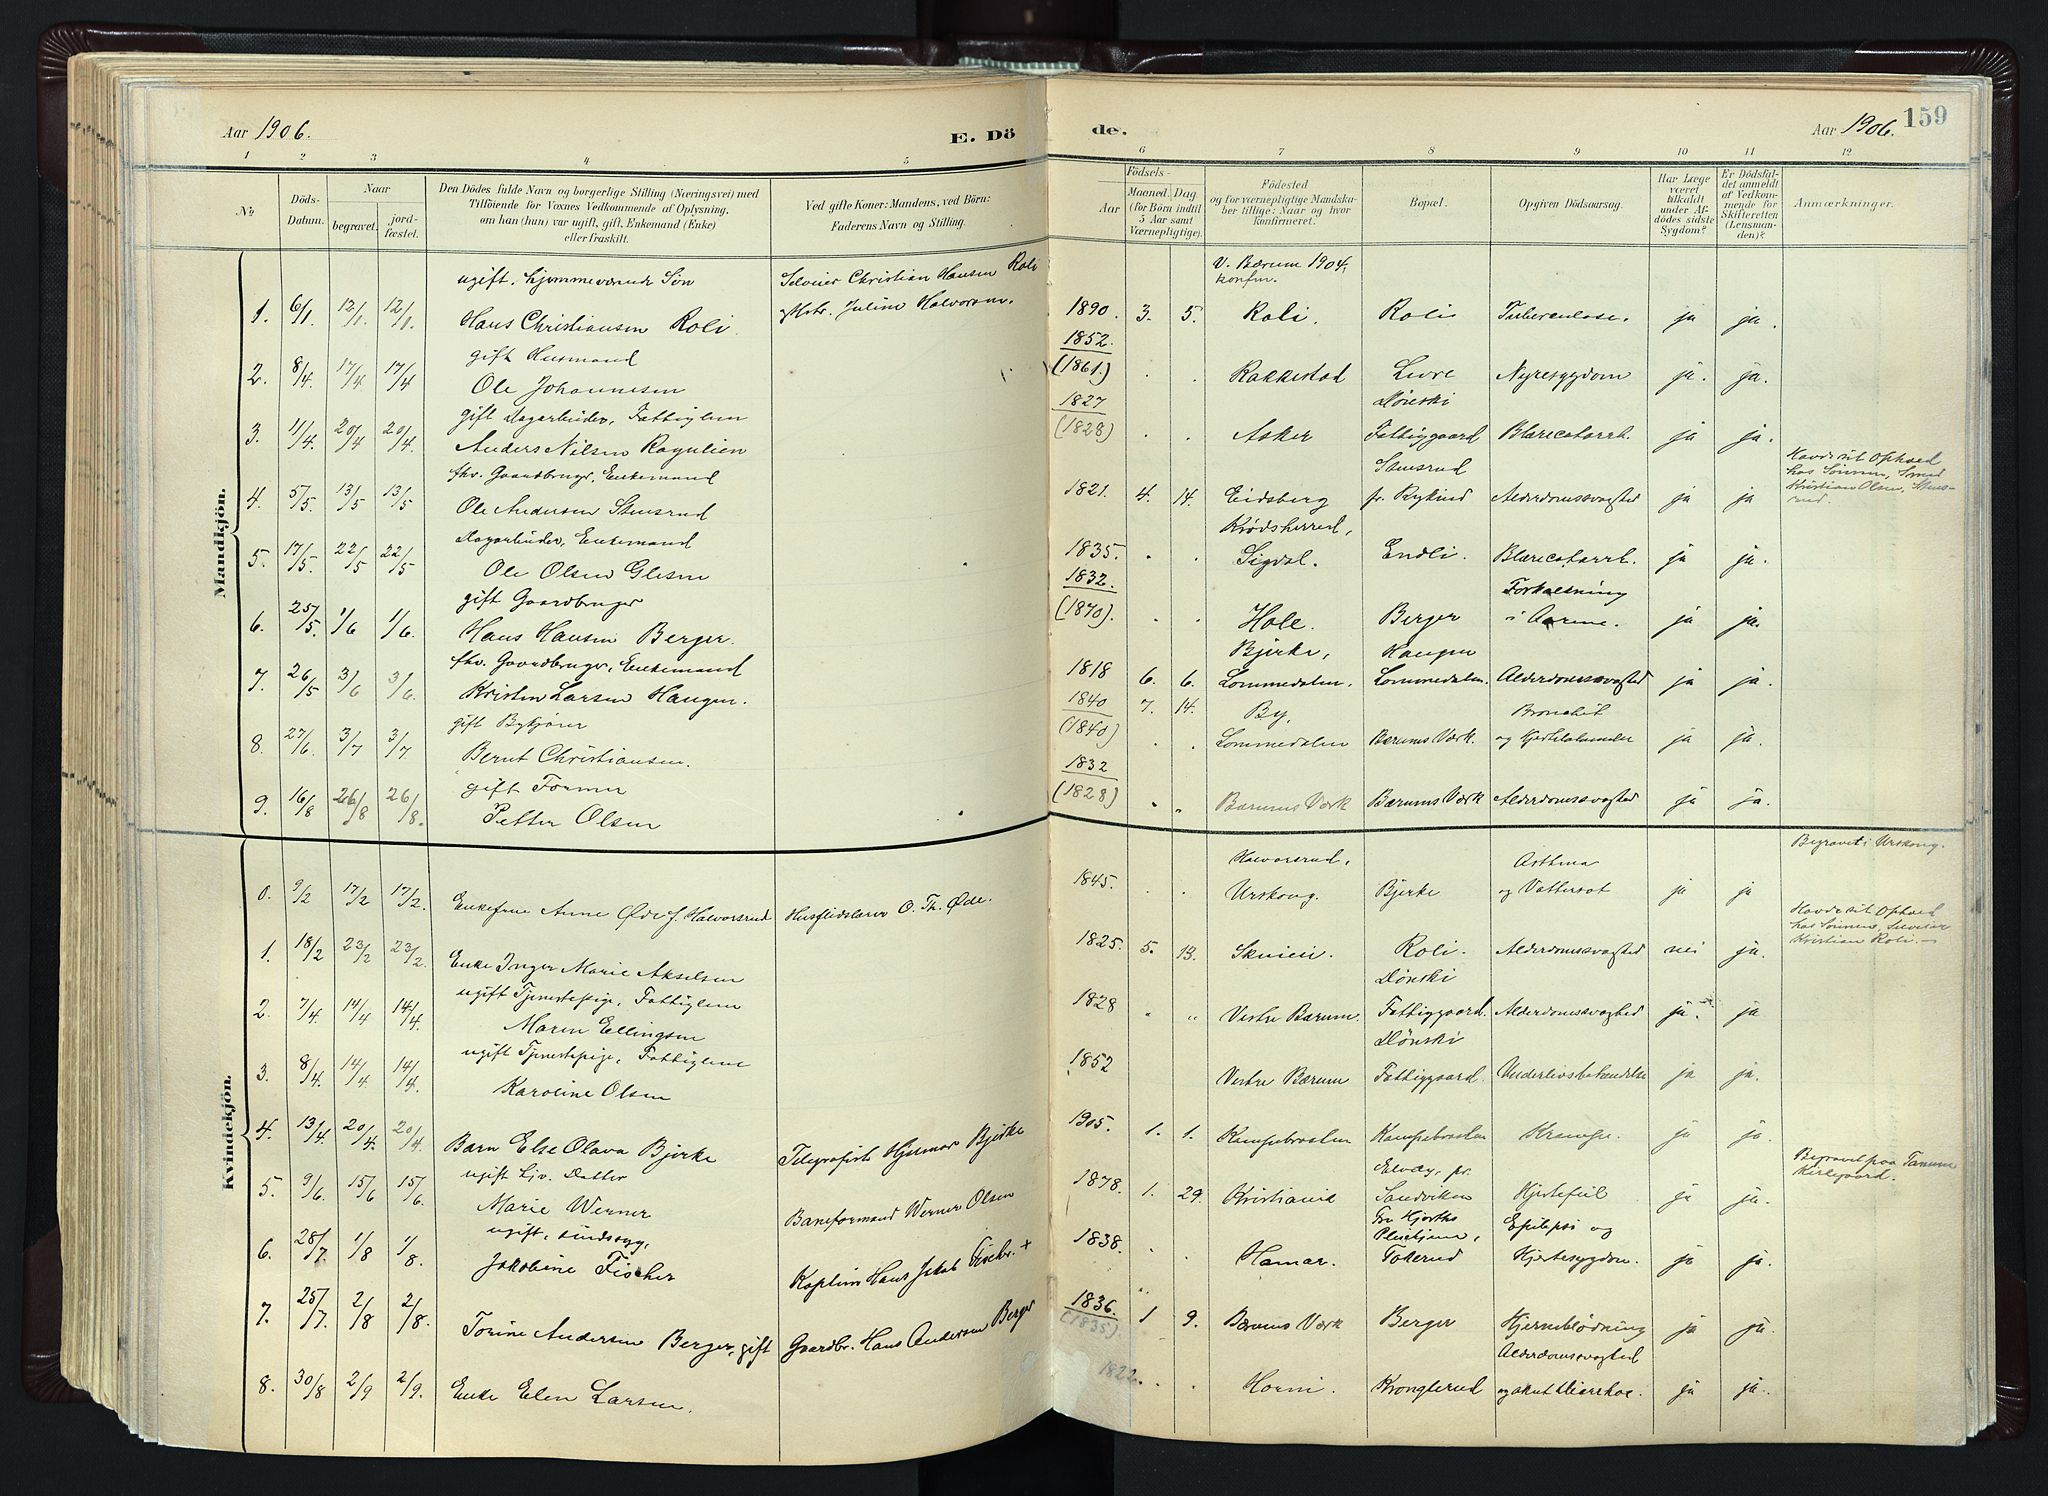 Aar 1906. E. Dö
de. Aar 1906. 159
1 2 3 4 5
6 7 8 9 10 11 12
№
Döds-
Datum.
Naar
begravet.
jord-
fæstet.
Den Dödes fulde Navn og borgerlige Stilling (Næringsvei) med
Tilföiende for Voxnes Vedkommende af Oplysning,
om han (hun) var ugift, gift, Enkemand (Enke)
eller fraskilt.
Ved gifte Koner: Mandens, ved Börn:
Faderens Navn og Stilling.
Födsels-
Aar
Maaned
Dag
(for Börn indtil
5 Aar samt
Værnepligtige).
Födested
og for værnepligtige Mandska-
ber tillige: Naar og hvor
konfirmeret.
Bopæl.
Opgiven Dödsaarsag.
Har Læge
været
tilkaldt
under Af-
dödes sidste
Sygdom?
Er Dödsfal-
det anmeldt
af Vedkom-
mende for
Skifteretten
(Lensman-
den)?
Anmærkninger.
Mandkjön.
ugift, hjemmeværende Søn Christian Hansen Roli V. Bærum 1904,
konfm.
1. 6/1 12/1 12/1 Hans Christiansen Roli. Juline Halvorsen. 1890. 3. 5. Roli. Roli Tuberculose. ja ja.
gift Husmand 1852.
2. 8/4. 17/4 17/4 Ole Johannesen (1861.) . . Rakkestad Nyresygdom ja. ja.
gift Dagarbeider, Fattiglem 1827 Dönski
3. 11/4. 20/4 20/4. Anders Nilsen (1828) . . Asker Fattiggaard Blærecatarrh. ja ja.
fhv. Gaardbruger, Enkemand Stensrud Havde sit Ophold
hos Sønnen, Smed
4. 5/5. 13/5 13/5 Ole Andersen Stensrud 1821. 4. 14. Eidsberg Alderdomssvaghed ja ja Kristian Olsen, Stens-
rud.
Dagarbeider, Enkemand Krødsherred,
5. 17/5. 22/5 22/5 Ole Olsen Glesne 1835. . . Sigdal. Endli. Blærecatarrh. ja ja.
gift Gaardbruger 1832. Forkalkning
6. 25/5. 1/6 1/6. Hans Hansen Berger. (1870). . . Hole. Berger i Aarerne. ja ja.
fhv. Gaardbruger, Enkemand Bjerke, Haugen
7. 26/5 3/6 3/6. Kristen Larsen Haugen. 1818 6. 6. Lommedalen. Lommedalen. Alderdomssvaghed ja ja.
gift 1840 7. 14. By, Bronchit
8. 27/6. 3/7 3/7. Bernt Christiansen. (1840) . . Lommedalen Bærums Værk. og ja ja.
gift Former 1832
9. 16/8 26/8 26/8. Petter Olsen (1828) " " Bærums Værk Bærums Værk Alderdomssvaghed ja ja.
Kvindekjön.
Halvorsrud, Asthma Begravet i Urskoug.
0. 9/2 17/2 17/2. Enkefrue Anne Øde f. Halvorsrud Husflidslærer O. Th. Øde. 1845. . . Urskoug. Bjerke og Vattersot ja ja
Havde sit Ophold
hos Sønnen, Selveier
1. 18/2 23/2 23/2. Enke Inger Marie Akselsen 1825. 5. 13. Skuien. Roli. Alderdomssvaghed nei ja. Kristian Roli.
ugift Tjenestepige, Fattiglem Dönski
2. 7/4. 14/4 14/4. Maren Ellingsen 1828 " " Vestre Bærum. Fattiggaard. Alderdomssvaghed ja. ja
ugift Tjenestepige, Fattiglem Dönski
3. 8/4. 14/4 14/4. Karoline Olsen 1852 Vestre Bærum Fattiggaard. Underlivsbetændelse ja ja.
4. 13/4. 20/4. 20/4 Barn Else Olava Bjerke Telegrafist Hjalmar Bjerke 1905. 1. 1. Kampebraaten Kampebraaten Krampe. ja ja.
ugift hjv. Datter Elvøy, pr. Begravet paa Tanum
Kirkegaard.
5. 9/6. 15/6 15/6. Marie Werner Baneformand Werner Olsen 1878. 1. 29. Kristiania Sandviken Hjertefeil ja ja.
ugift, sindssyg, Fru Hjorths
Pleiehjem, Epilepsi og
6. 28/7. 1/8 1/8. Jakobine Fischer Kaptein Hans Jakob Fischer. + 1838. . . Hamar. Tokerud Hjertesygdom. ja ja.
7. 25/7. 2/8 2/8. Torine Andersen Berger, gift Gaardbr. Hans Andersen Berger 1836. (1835) 1 9. Bærums Værk Berger Hjerneblödning ja ja.
Alderdomssvaghed
8. 30/8 2/9 2/9. Enke Elen Larsen. 1822. . . Horni. Krongterud og akut Diarrhoe. ja ja.